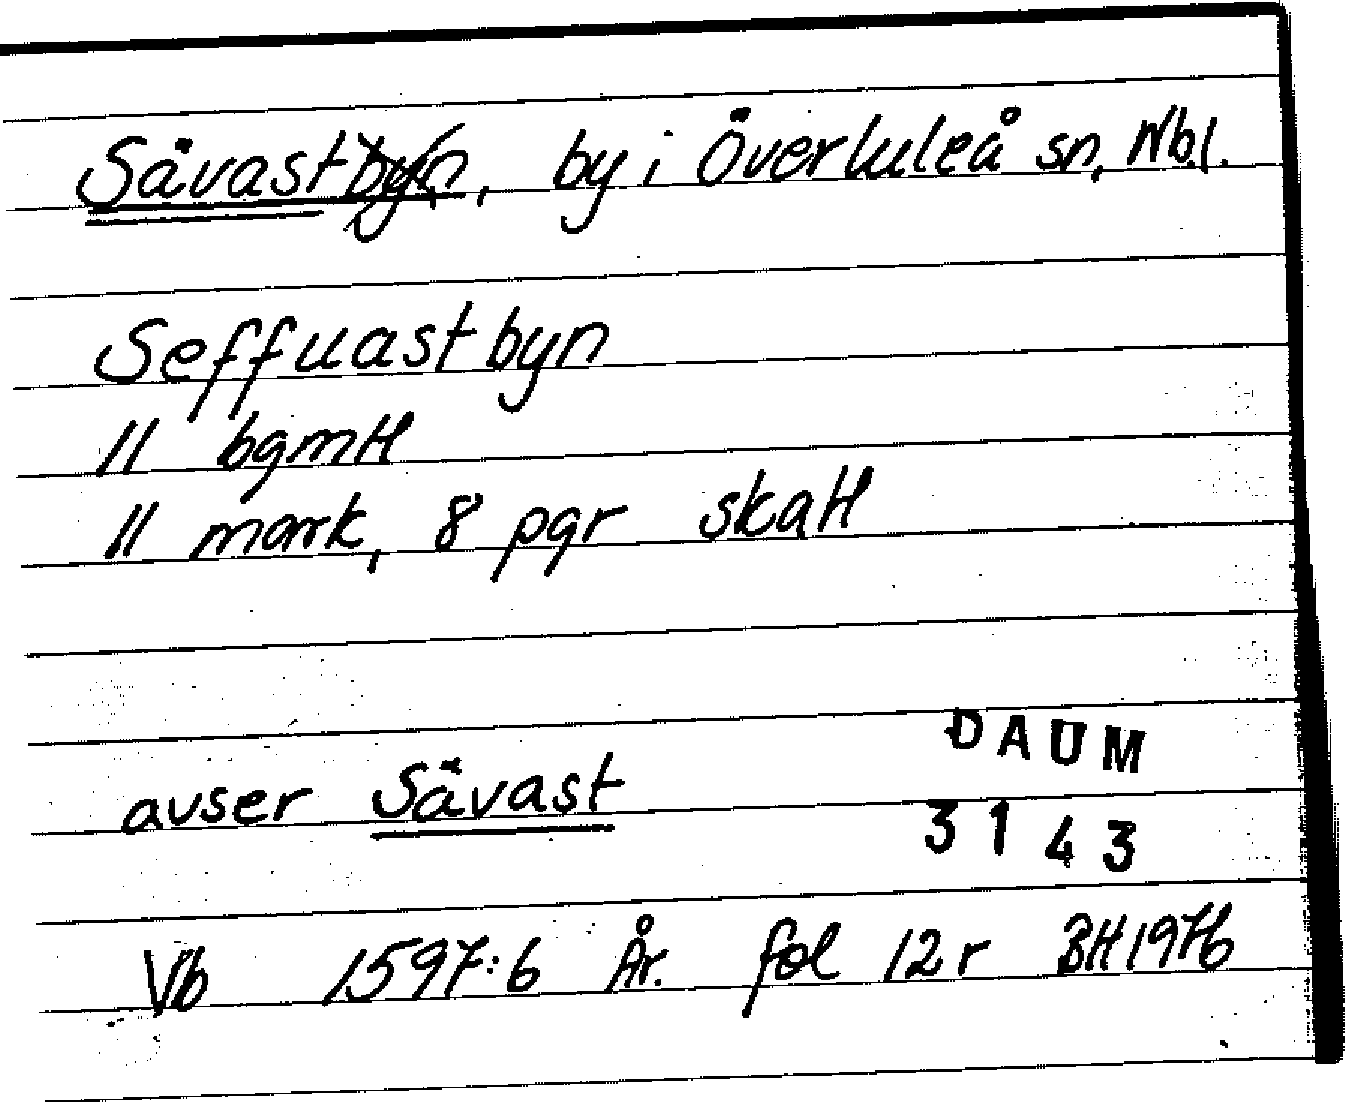 Sävastbyn, by i Överluleå sn, Nbl.
Seffuastbyn
11 bgmtt
11 mark, 8 pgr skatt
DAUM
avser Sävast
3143
Vb 1597:6 År. fol 12 r BH 1976